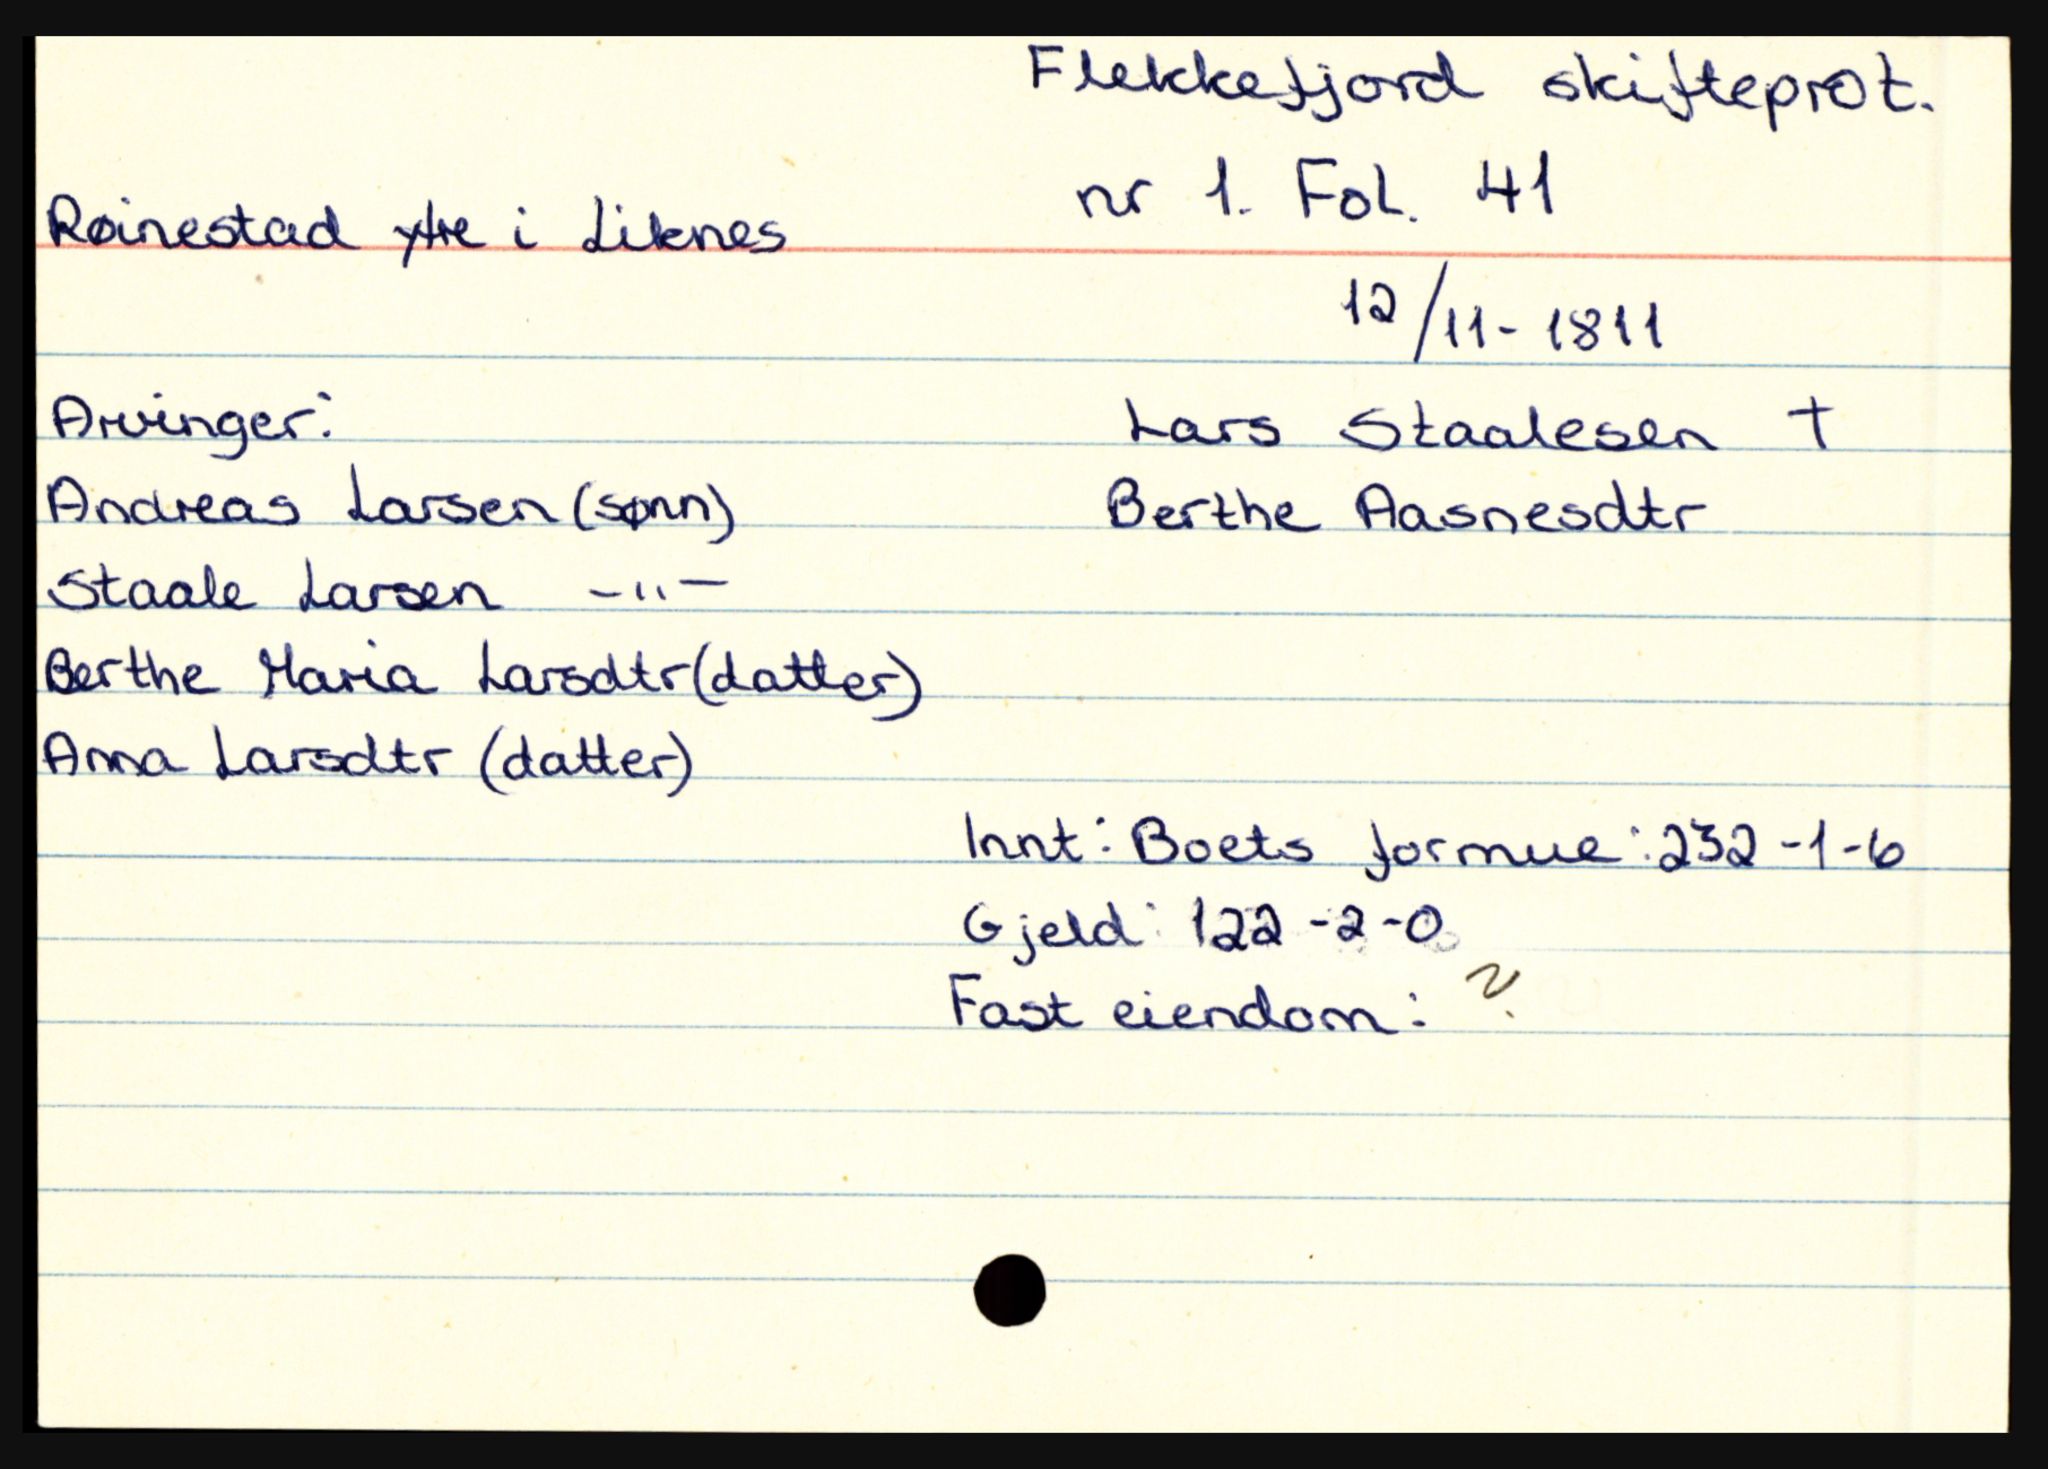 Flekkefjord skifteprot.
nr 1. Fol. 41
Røinestad ytre i Liknes
12/11-1811
Arvinger:
Lars Staalesen †
Andreas Larsen (sønn)
Berthe Aasnesdtr
Staale Larsen -"-
Berthe Maria Larsdtr (datter)
Anna Larsdtr (datter)
Innt: Boets formue: 232-1-6
Gjeld: 122-2-0
Fast eiendom: ?